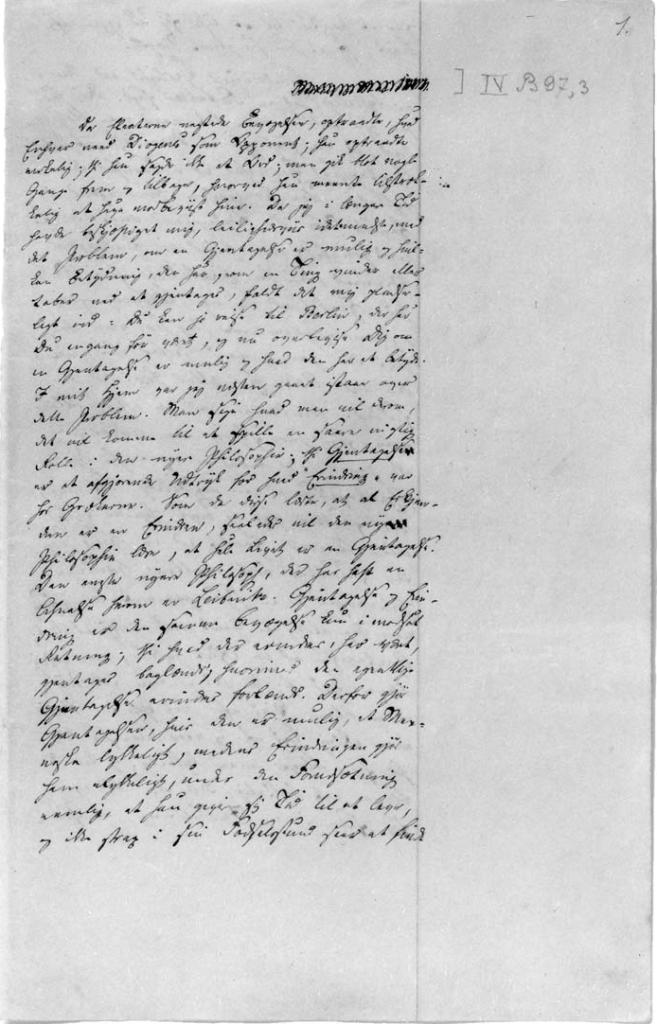 1.
] IV B 97,3
Da Eleaterne negtede Bevægelsen, optraadte, hvad
Enhver veed Diogenes som Opponent; han optraadte
virkelig; thi han sagde ikke et Ord; men gik blot nogle
Gange frem og tilbage, hvorved han meente tilstræk-
kelig at have modbeviist hine. Da jeg i længere Tid
havde beskjæftiget mig, leilighedsviis idetmindste, med
det Problem, om en Gjentagelse er mulig og hvil-
ken Betydning, den har, om en Ting vinder eller
taber ved at gjentages, faldt det mig pludse-
ligt ind: Du kan jo reise til Berlin, der har
Du engang før været, og nu overbevise Dig om
en Gjentagelse er mulig og hvad den har at betyde.
I mit Hjem var jeg næsten gaaet istaae over
dette Problem. Man sige hvad man vil derom,
det vil komme til at spille en saare vigtig
Rolle i den nyere Philosophie; thi Gjentagelsen
er et afgjørende Udtryk for hvad "Erindring" var
for Grækerne. Som da disse lærte, at al Erkjen-
den er en Erindren, saaledes vil den nye
Philosophie lære, at hele Livet er en Gjentagelse.
Den eneste nyere Philosoph, der har havt en
Ahnelse herom er Leibnitz. Gjentagelse og Erin-
dring er den samme Bevægelse kun i modsat
Retning; thi hvad der erindres, har været,
gjentages baglænds; hvorimod den egentlige
Gjentagelse erindres forlænds. Derfor gjør
Gjentagelsen, hvis den er mulig, et Men-
neske lykkeligt, medens Erindringen gjør
ham ulykkelig, under den Forudsætning
nemlig, at han giver sig Tid til at leve,
og ikke strax i sin Fødselsstund seer at finde